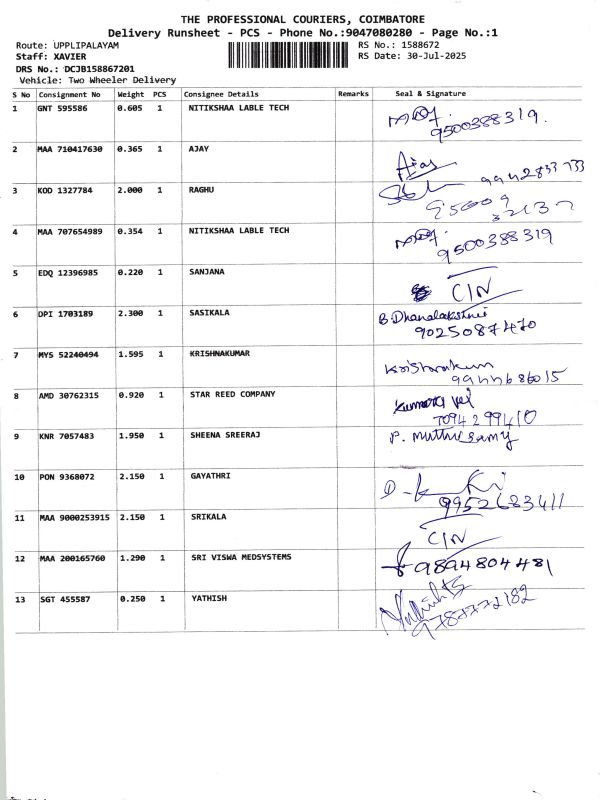 THE PROFESSIONAL COURIERS, COIMBATORE
Delivery Runsheet - PCS - Phone No.:9047080280 - Page No.:1
Route: UPPLIPALAYAM RS No.: 1588672
Staff: XAVIER RS Date: 30-Jul-2025
DRS No.: DCJB158867201
Vehicle: Two Wheeler Delivery
S No Consignment No Weight PCS Consignee Details Remarks Seal & Signature
1 GNT 595586 0.605 1 NITIKSHAA LABLE TECH
9500388319.
2 MAA 710417630 0.365 1 AJAY
Ajay 9942833733
3 KOD 1327784 2.000 1 RAGHU
4 MAA 707654989 0.354 1 NITIKSHAA LABLE TECH
9500388319
5 EDQ 12396985 0.220 1 SANJANA
C/N
6 DPI 1703189 2.300 1 SASIKALA
B.Dhanalakshmi
9025087470
7 MYS 52240494 1.595 1 KRISHNAKUMAR
Krishnakum
8 AMD 30762315 0.920 1 STAR REED COMPANY
Kumara vel
7094299410
9 KNR 7057483 1.950 1 SHEENA SREERAJ
P. Muthusamy
10 PON 9368072 2.150 1 GAYATHRI
9952683411
11 MAA 9000253915 2.150 1 SRIKALA
C/N
12 MAA 200165760 1.290 1 SRI VISWA MEDSYSTEMS
9894804481
13 SGT 455587 0.250 1 YATHISH
9787772182